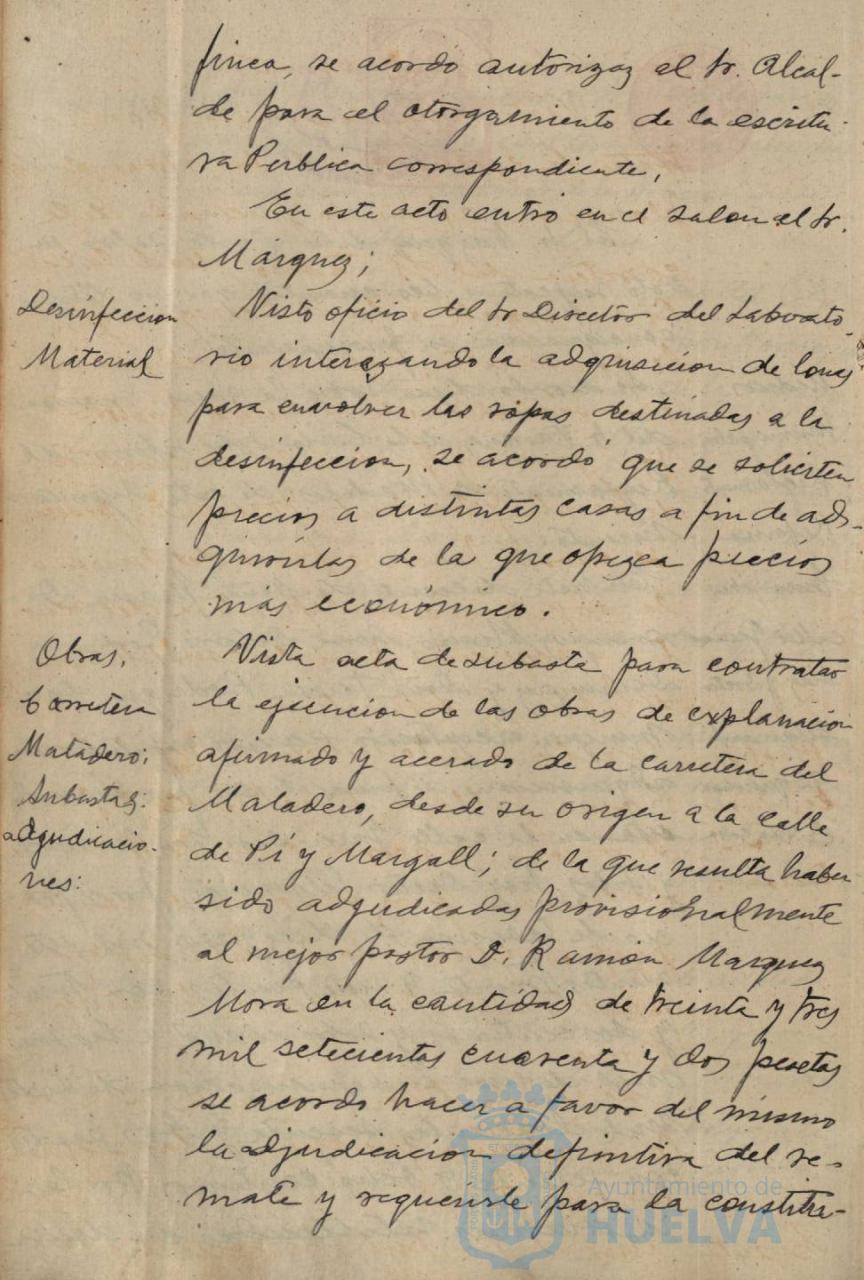 finca, se acordó autorizar al Sr. Alcal-
de para el otorgamiento de la escritu-
ra Pública correspondiente,
En este acto entró en el salon el Sr.
Márquez;
Desinfeccion
Material
Visto oficio del Sr Director del Laborato-
rio interezando la adquisicion de lonas
para envolver las ropas destinadas a la
desinfeccion, se acordó que se soliciten
precios a distintas casas a fin de ad-
quirirlas de la que oprezca precios
más económico.
Obras.
Carretera
Matadero;
Subastas:
adjudicacio-
nes:
Vista acta de subasta para contratar
la ejecucion de las obras de explanacion
afirmado y acerado de la carretera del
Matadero, desde su origen a la calle
de Pí y Margall; de la que resulta haber
sido adjudicadas provisionalmente
al mejor postor D. Ramón Marquez
Mora en la cantidad de treinta y tres
mil setecientas cuarenta y dos pesetas
se acordó hacer a favor del mismo
la adjudicacion definitiva del re-
mate y requerirle para la constitu-
Ayuntamiento de
HUELVA